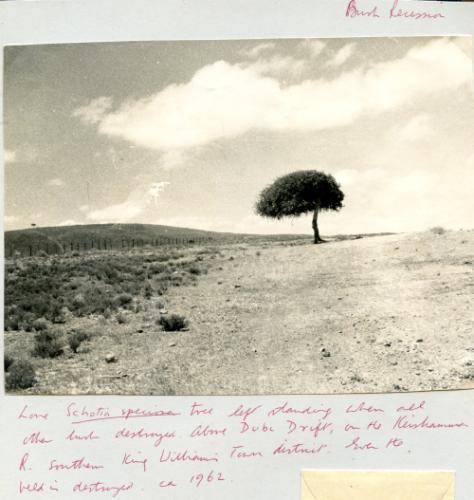 Bush Recession
Lone Schotia speciosa tree left standing when all
other bush destroyed. Above Dubu Drift, on the Keiskamma
R. southern King William's Town district. Even the
veld is destroyed. ca 1962.